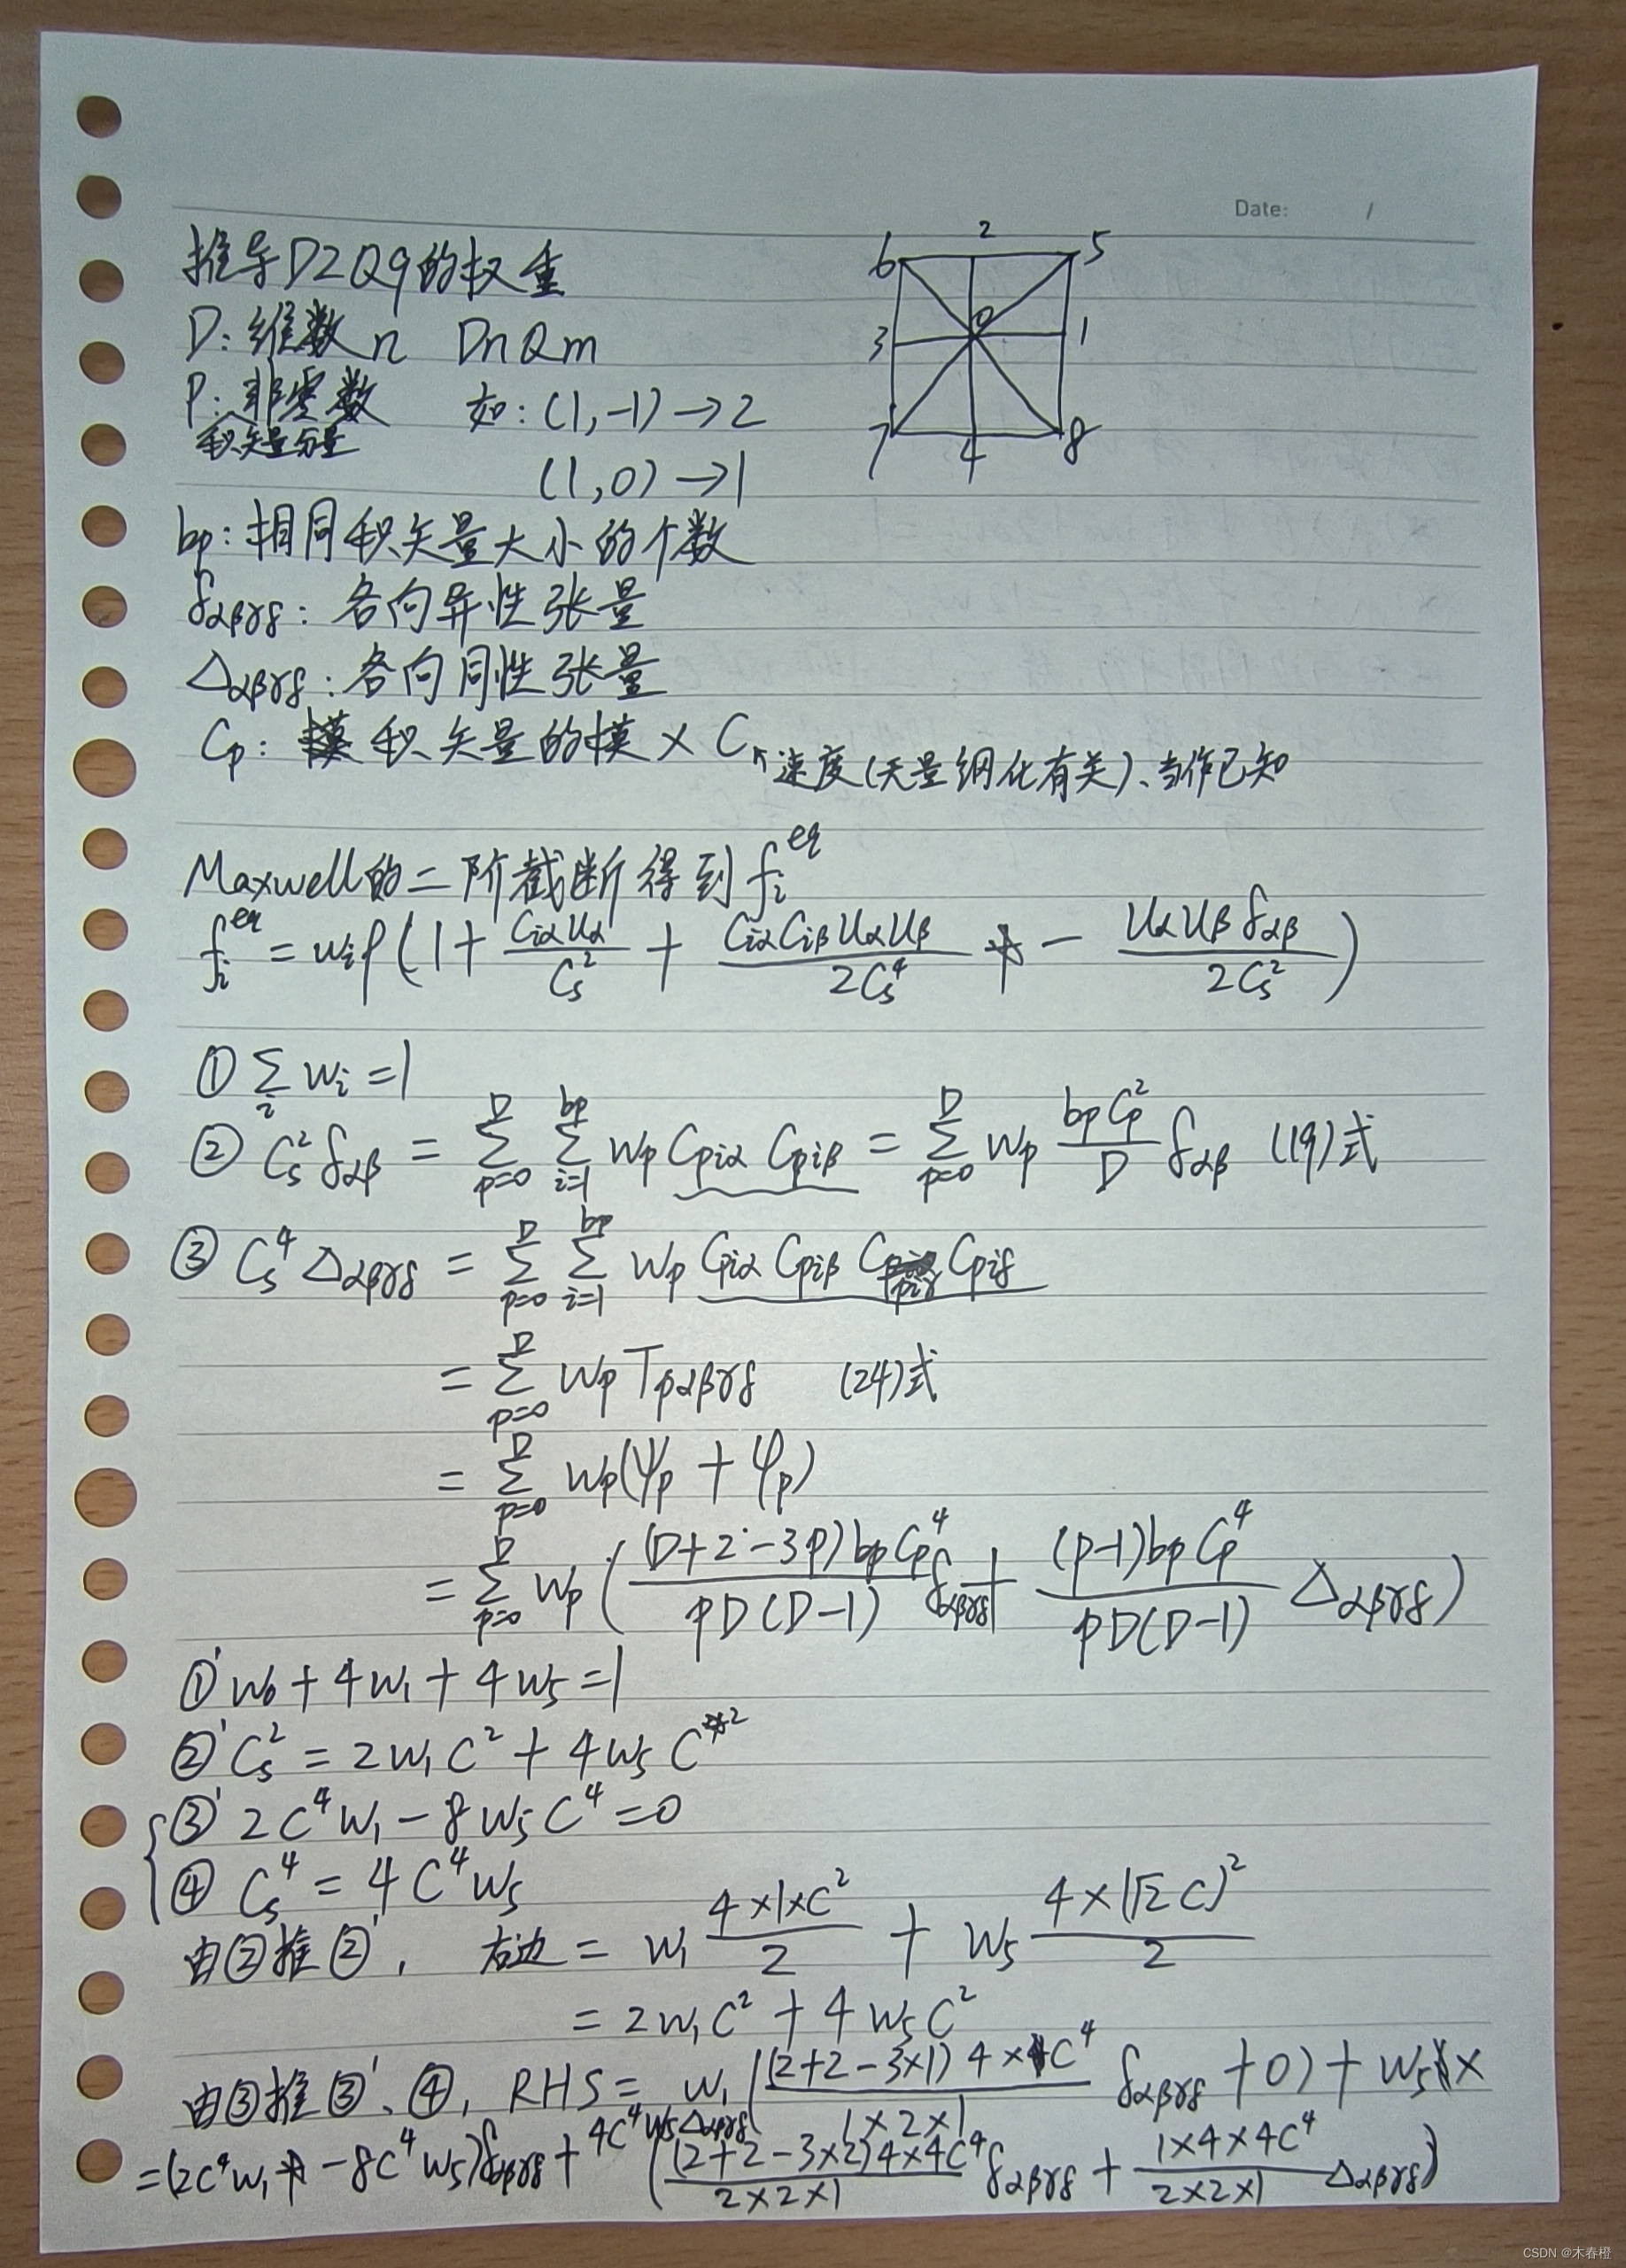 Date: /
推导D2Q9的权重
6 2 5
3 0 1
7 4 8
D: 维数n DnQm
P: 非零数 如: (1,-1)→2
积矢量分量
(1,0)→1
bp: 相同积矢量大小的个数
δαβγδ: 各向异性张量
Δαβγδ: 各向同性张量
Cp: 积矢量的模 × C 速度(无量纲化有关)、当作已知
Maxwell的二阶截断得到 fi^eq
fi^eq = wiρ(1 + Ciα uα / Cs² + Ciα Ciβ uα uβ / 2Cs⁴ − uα uβ δαβ / 2Cs²)
① Σi wi = 1
② Cs² δαβ = Σ(p=0→D) Σ(i=1→bp) wp Cpiα Cpiβ = Σ(p=0→D) wp (bp Cp² / D) δαβ (19)式
③ Cs⁴ Δαβγδ = Σ(p=0→D) Σ(i=1→bp) wp Cpiα Cpiβ Cpiγ Cpiδ
= Σ(p=0→D) wp Tpαβγδ (24)式
= Σ(p=0→D) wp(ψp + φp)
= Σ(p=0→D) wp( (D+2−3p)bpCp⁴ / pD(D−1) δαβγδ + (p−1)bpCp⁴ / pD(D−1) Δαβγδ )
①' w0 + 4w1 + 4w5 = 1
②' Cs² = 2w1C² + 4w5C²
③' 2C⁴w1 − 8w5C⁴ = 0
④ Cs⁴ = 4C⁴w5
由②推②', 右边 = w1 (4×1×C² / 2) + w5 (4×(√2C)² / 2)
= 2w1C² + 4w5C²
由③推③'、④, RHS = w1( (2+2−3×1)4×C⁴ / 1×2×1 δαβγδ + 0) + w5×
( (2+2−3×2)4×4C⁴ / 2×2×1 δαβγδ + 1×4×4C⁴ / 2×2×1 Δαβγδ )
= (2C⁴w1 − 8C⁴w5)δαβγδ + 4C⁴w5Δαβγδ
CSDN @木春橙